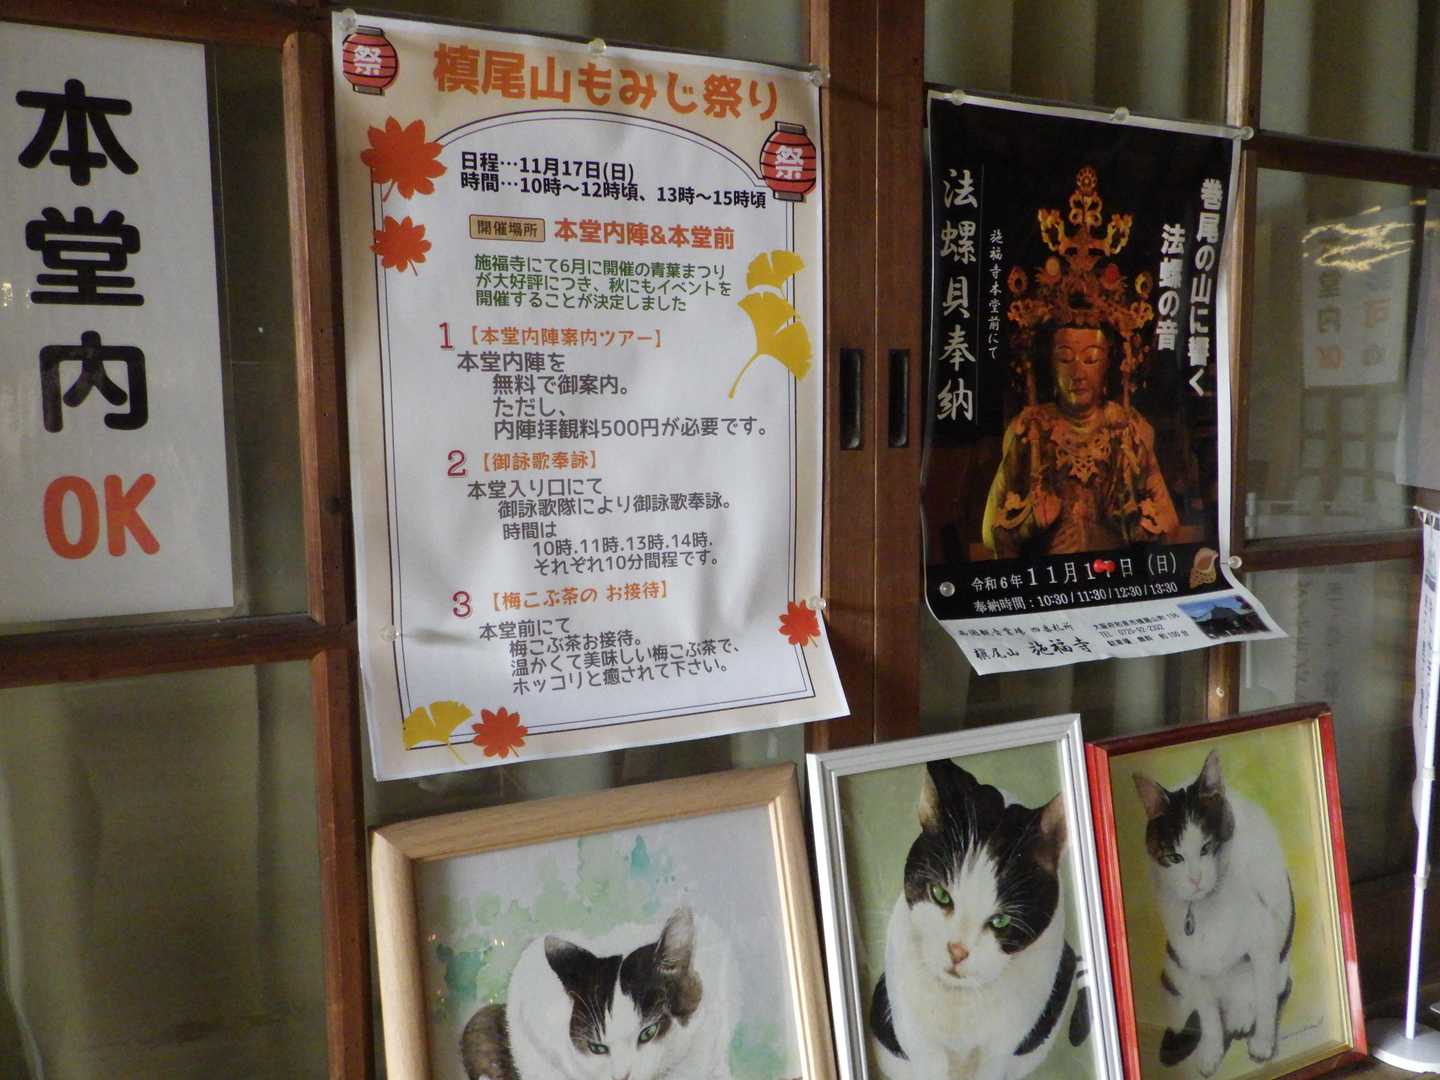 本堂内
OK
祭
槙尾山もみじ祭り
祭
日程…11月17日(日)
時間…10時～12時頃、13時～15時頃
開催場所
本堂内陣&本堂前
施福寺にて6月に開催の青葉まつり
が大好評につき、秋にもイベントを
開催することが決定しました
1【本堂内陣案内ツアー】
本堂内陣を
無料で御案内。
ただし、
内陣拝観料500円が必要です。
2【御詠歌奉詠】
本堂入り口にて
御詠歌隊により御詠歌奉詠。
時間は
10時.11時.13時.14時.
それぞれ10分間程です。
3【梅こぶ茶の お接待】
本堂前にて
梅こぶ茶お接待。
温かくて美味しい梅こぶ茶で、
ホッコリと癒されて下さい。
巻尾の山に響く
法螺の音
施福寺本堂前にて
法螺貝奉納
令和6年11月17日(日)
奉納時間：10:30 / 11:30 / 12:30 / 13:30
西国観音霊場 四番札所
槙尾山 施福寺
大阪府和泉市槙尾山町136
TEL 0725-92-2332
駐車場 無料 約100台